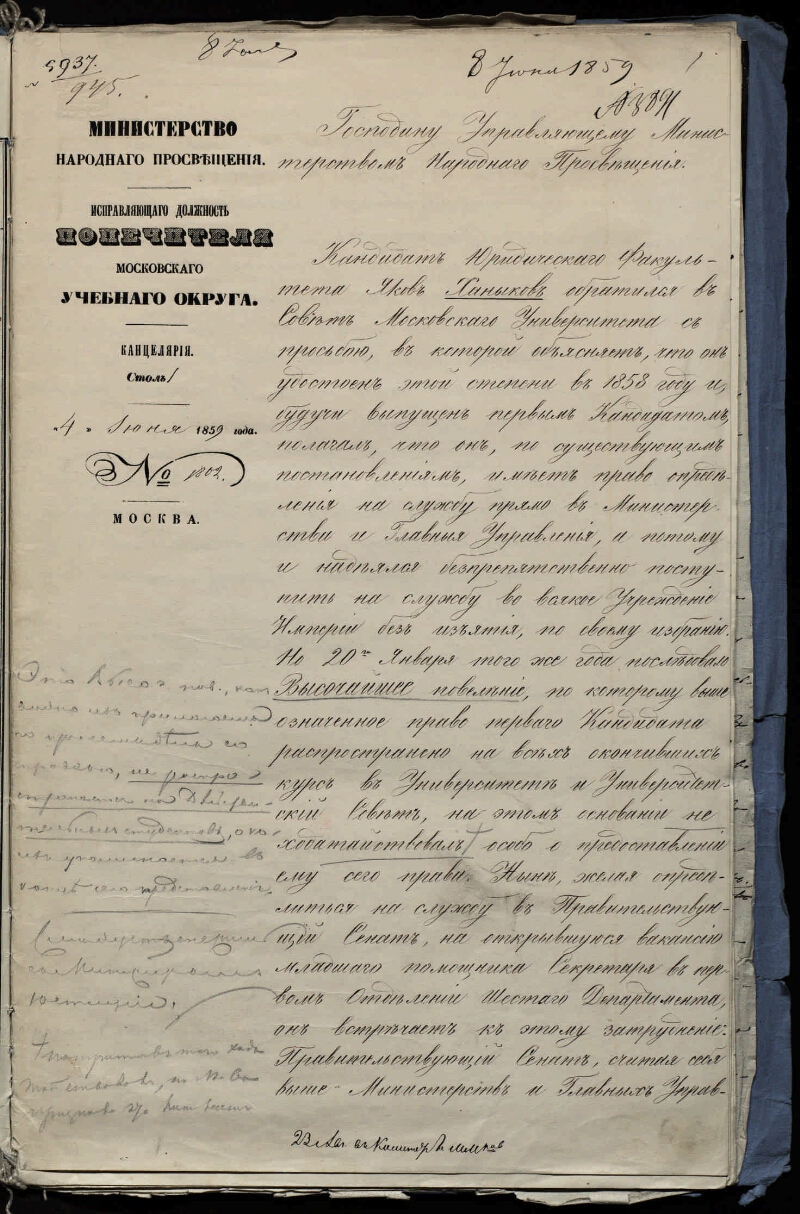 5937.
945.
8 Іюня 1859
МИНИСТЕРСТВО
НАРОДНАГО ПРОСВѢЩЕНІЯ.
ИСПРАВЛЯЮЩАГО ДОЛЖНОСТЬ
ПОПЕЧИТЕЛЯ
МОСКОВСКАГО
УЧЕБНАГО ОКРУГА.
КАНЦЕЛЯРІЯ.
Столъ 1
„4„ Іюня 1859 года.
№ 1802.
МОСКВА.
Господину Управляющему Минис-
терствомъ Народнаго Просвѣщенія.
Кандидатъ Юридическаго Факуль-
тета Яковъ Ханыковъ обратился въ
Совѣтъ Московскаго Университета съ
просьбою, въ которой объясняетъ, что онъ
удостоенъ этой степени въ 1858 году и,
будучи выпущенъ первымъ Кандидатомъ,
полагалъ, что онъ, по существующимъ
постановленіямъ, имѣетъ право опредѣ-
ленія на службу прямо въ Министер-
ства и Главныя Управленія, а потому
и надѣялся безпрепятственно посту-
пить на службу во всякое Учрежденіе
Имперіи безъ изъятія, по своему избранію.
Но 20го Января того же года послѣдовало
Высочайшее повелѣніе, по которому выше
означенное право перваго Кандидата
распространено на всѣхъ окончившихъ
курсъ въ Университетѣ и Университет-
скій Совѣтъ, на этомъ основаніи не
ходатайствовалъ особо о предоставленіи
ему сего права. Нынѣ, желая опредѣ-
литься на службу въ Правительствую-
щій Сенатъ, на открывшуюся вакансію
младшаго помощника Секретаря въ пер-
вомъ Отдѣленіи Шестаго Департамента,
онъ встрѣчаетъ къ этому затрудненіе:
Правительствующій Сенатъ, считая себя
выше Министерствъ и Главныхъ Управ-